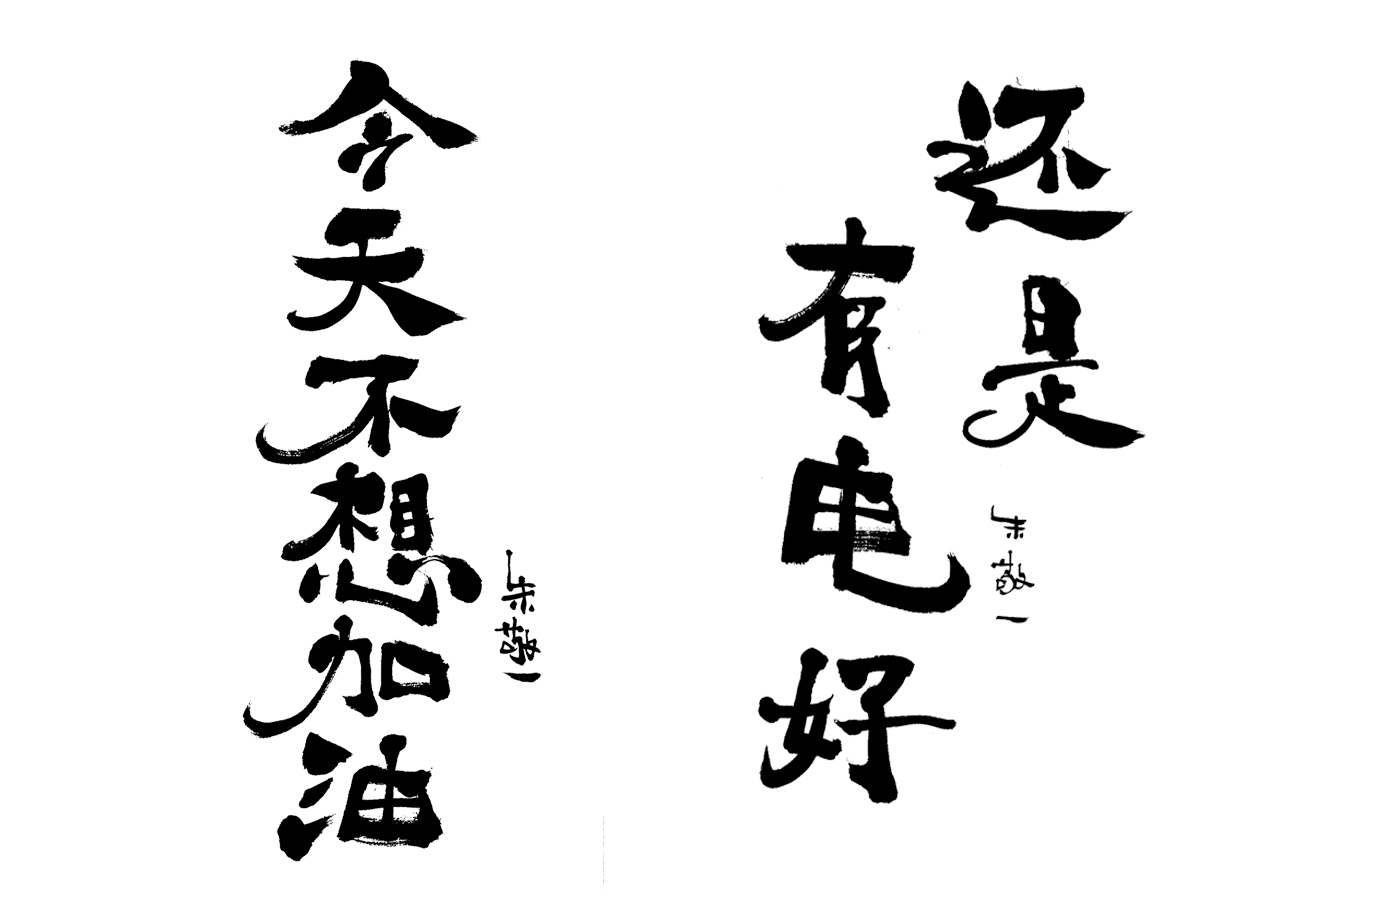 今天不想加油
朱敬一
还是
有电好
朱敬一